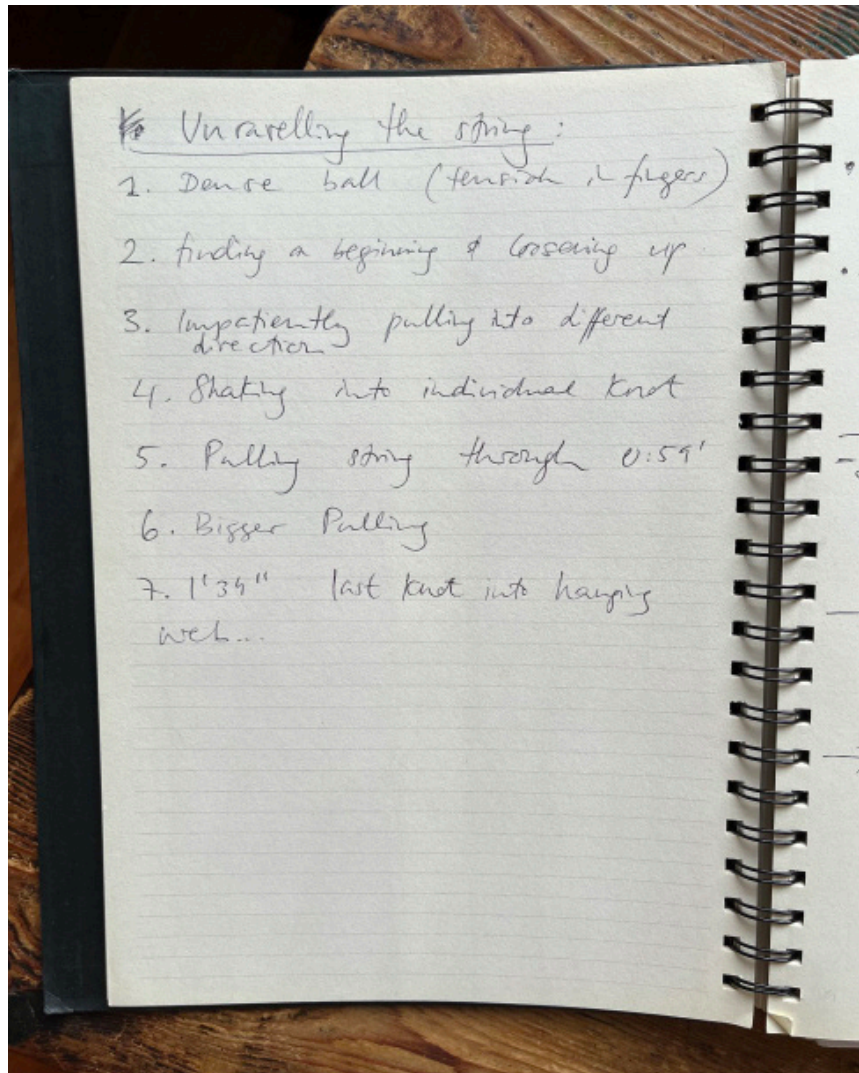 Unravelling the string:
1. Dense ball (tension in fingers)
2. finding a beginning & loosening up
3. Impatiently pulling into different
direction
4. Shaking into individual knot
5. Pulling string through 0:59'
6. Bigger Pulling
7. 1'34" last knot into hanging
web...